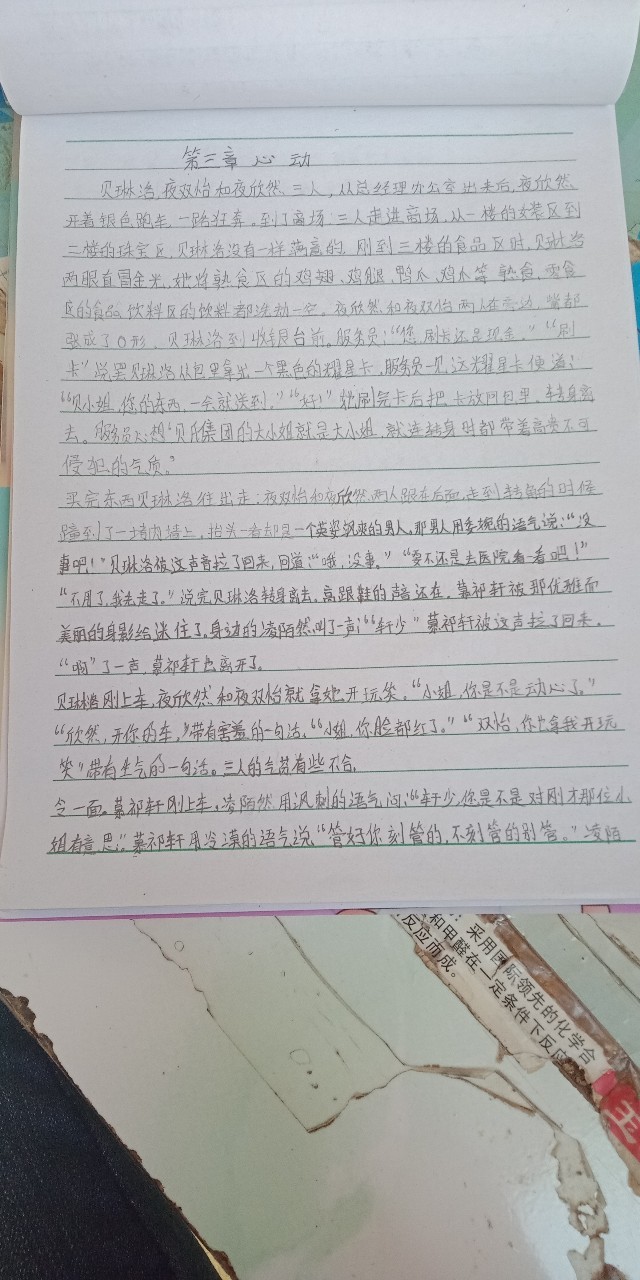 第三章 心动
贝琳洛,夜双怡和夜欣然,三人,从总经理办公室出来后,夜欣然
开着银色跑车,一路狂奔。到了商场,三人走进商场,从一楼的女装区到
二楼的珠宝区,贝琳洛没有一样满意的,刚到三楼的食品区时,贝琳洛
两眼直冒金光,她将熟食区的鸡翅、鸡腿、鸭爪、鸡爪等熟食,零食
区的食品,饮料区的饮料都洗劫一空。夜欣然和夜双怡两人在旁边,嘴都
张成了O形,贝琳洛到收银台前。服务员:“您,刷卡还是现金。”“刷
卡”说罢贝琳洛从包里拿出一个黑色的耀星卡,服务员一见这耀星卡便道:
“贝小姐,你的东西,一会就送到。”“好!”她刷完卡后把卡放回包里,转身离
去。服务员心想“贝氏集团的大小姐就是大小姐,就连转身时都带着高贵不可
侵犯的气质。”
买完东西贝琳洛往出走;夜双怡和夜欣然两人跟在后面,走到转角的时候
撞到了一堵肉墙上,抬头一看却是一个英姿飒爽的男人,那男人用委婉的语气说:“没
事吧!”贝琳洛被这声音拉了回来,回道:“哦,没事。”“要不还是去医院看一看吧!”
“不用了,我先走了。”说完贝琳洛转身离去,高跟鞋的声音还在,慕祁轩被那优雅而
美丽的身影给迷住了,身边的凌陌然叫了一声;“轩少”慕祁轩被这声拉了回来,
“啊”了一声,慕祁轩也离开了。
贝琳洛刚上车,夜欣然和夜双怡就拿她开玩笑。“小姐,你是不是动心了。”
“欣然,开你的车,”带有害羞的一句话,“小姐,你脸都红了。”“双怡,你也拿我开玩
笑”带有生气的一句话。三人的气氛有些不合,
令一面。慕祁轩刚上车,凌陌然用讽刺的语气问:“轩少,您是不是对刚才那位小
姐有意思”,慕祁轩用冷漠的语气说“管好你刻管的,不刻管的别管。”凌陌
采用国际领先的化学合
和甲醛在一定条件下反应
反应而成。
玉